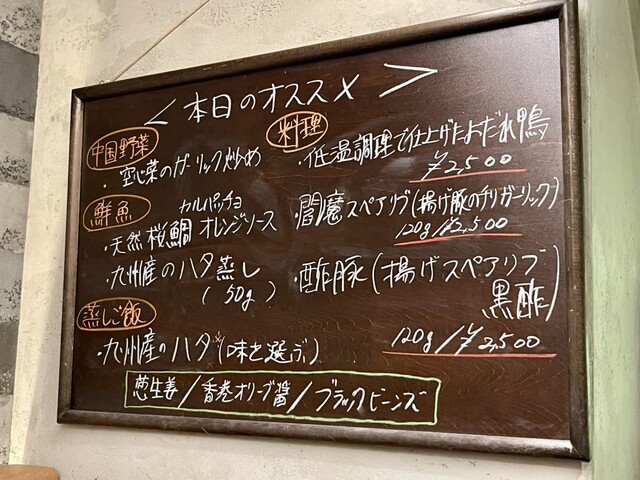 ＜本日のオススメ＞
中国野菜
・空心菜のガーリック炒め
鮮魚
カルパッチョ
・天然桜鯛 オレンジソース
・九州産のハタ蒸し
(50g)
蒸しご飯
・九州産のハタ(味を選ぶ)
葱生姜/香港オリーブ醤/ブラックビーンズ
料理
・低温調理で仕上げたよだれ鴨
¥2,500
・閻魔スペアリブ(揚げ豚のチリガーリック)
120g/¥2,500
・酢豚(揚げスペアリブ
黒酢)
120g/¥2,500